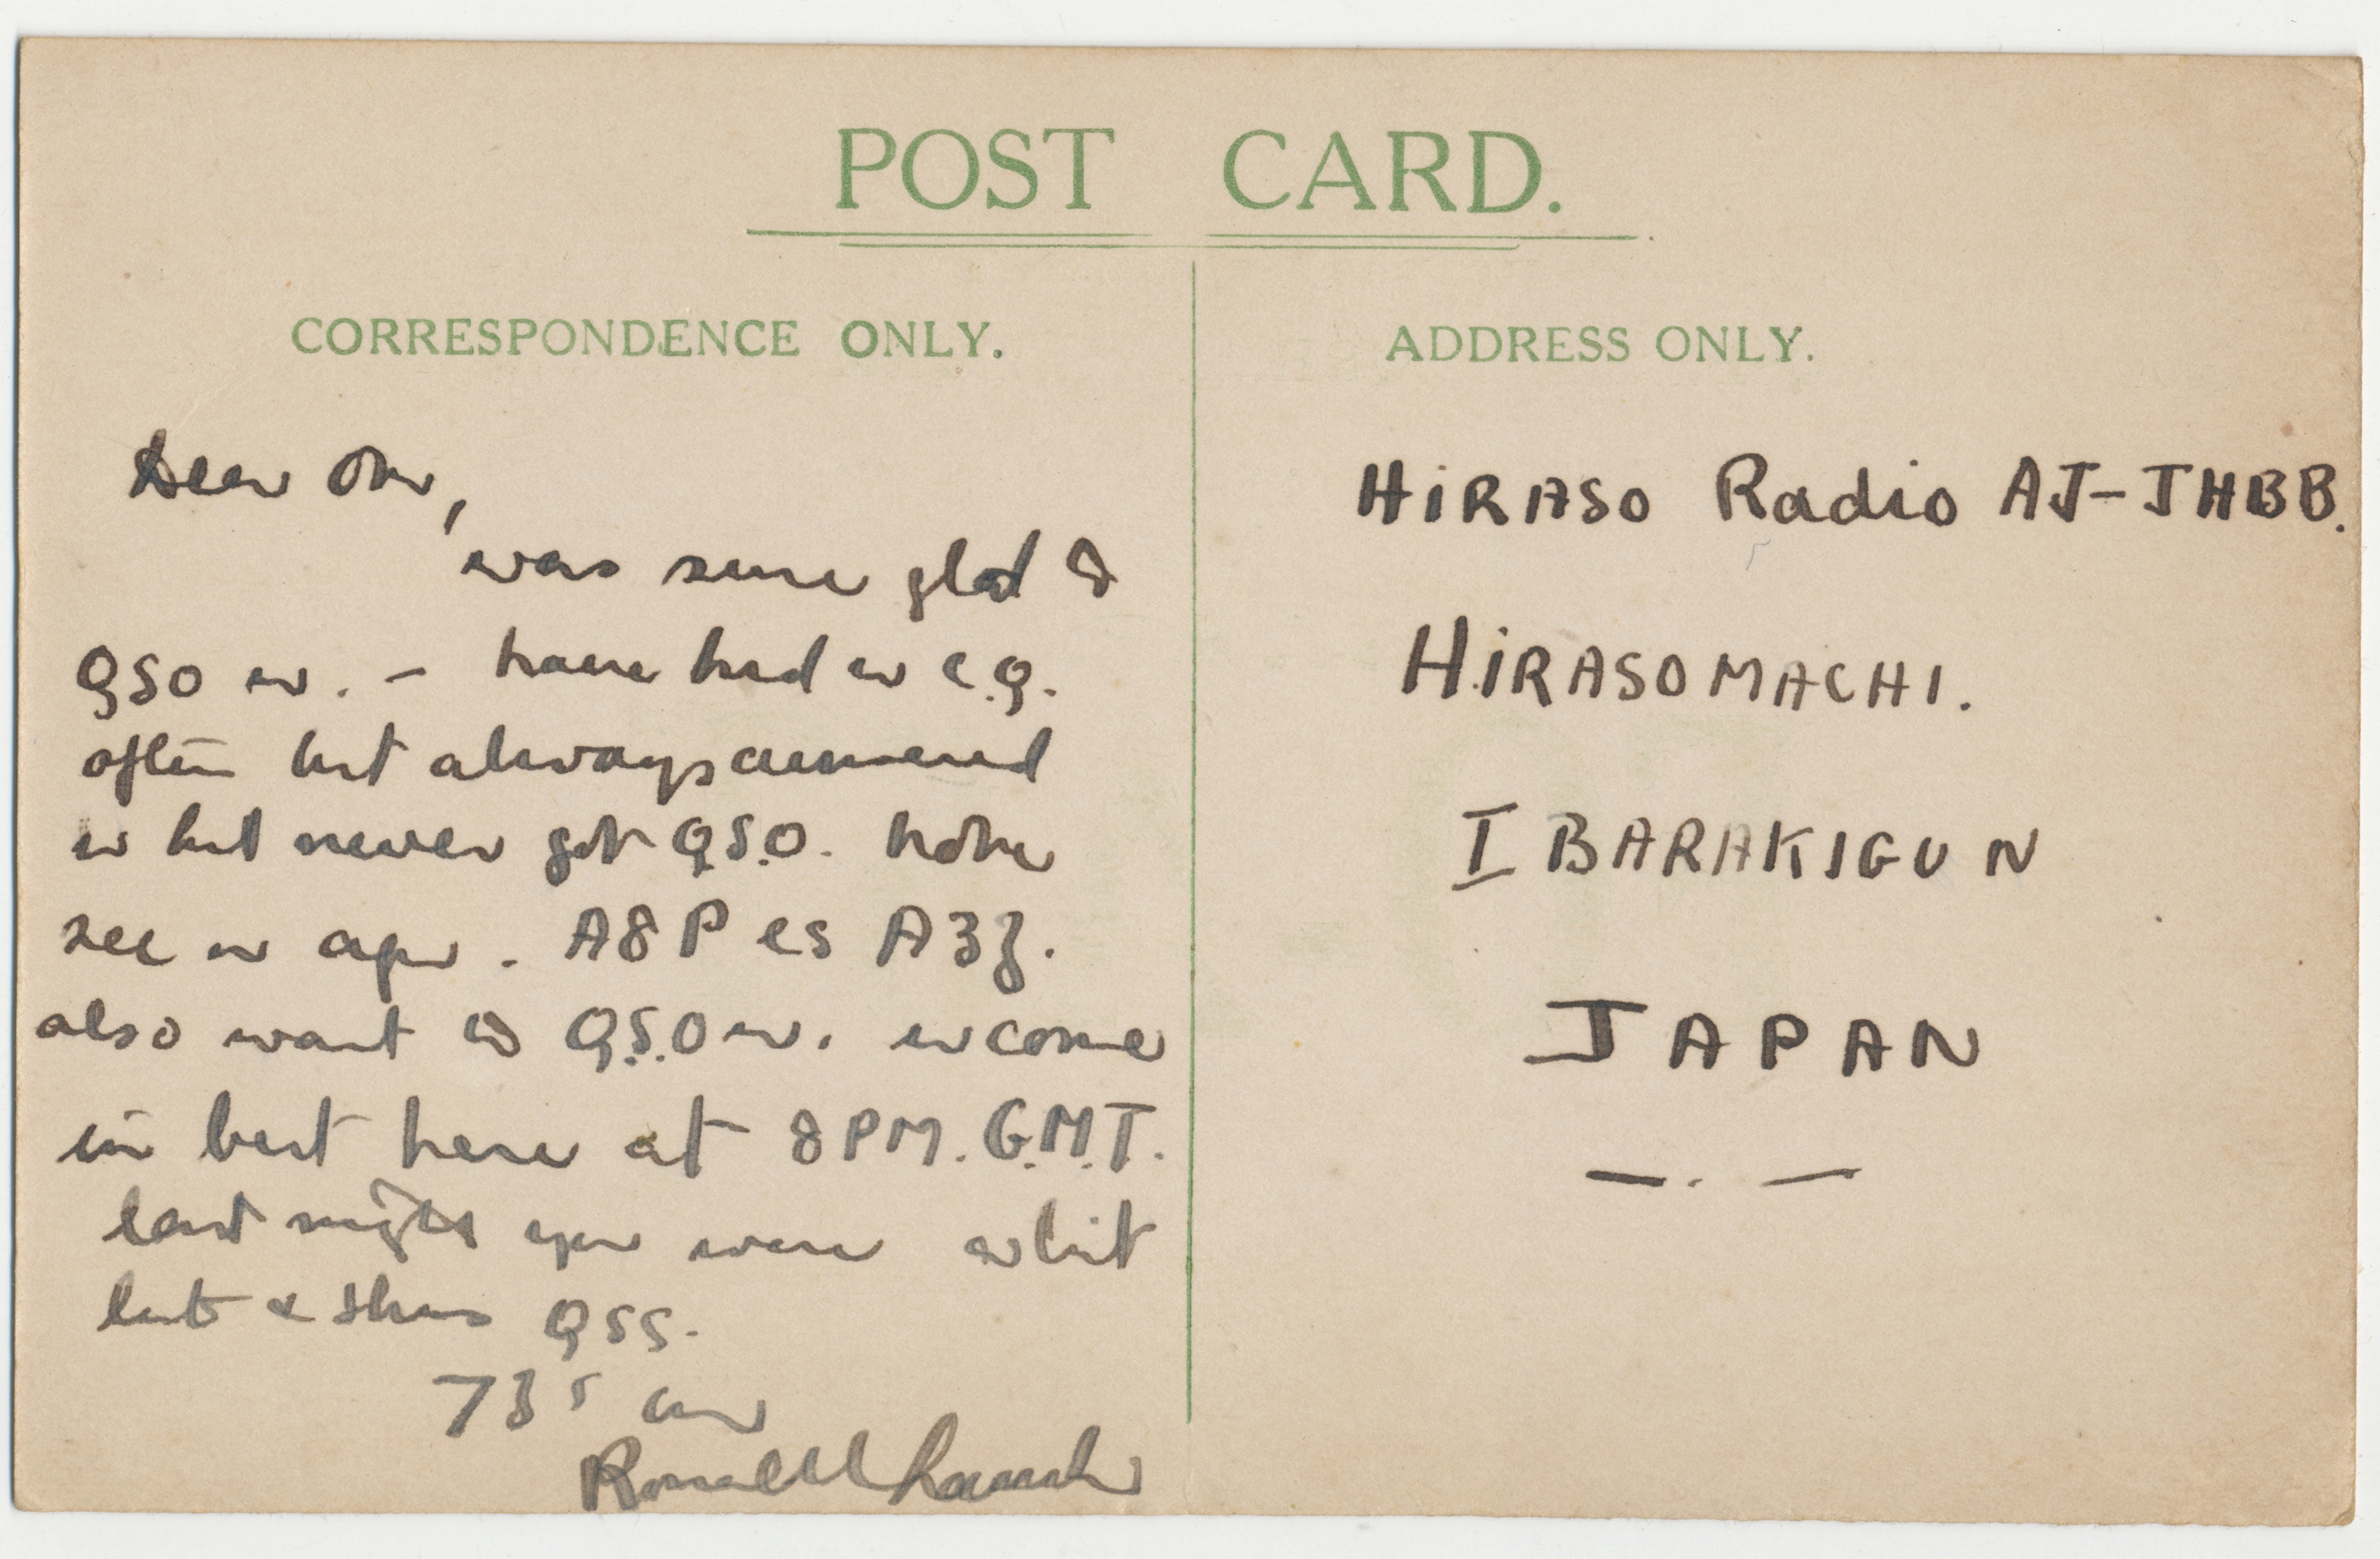 POST CARD.
CORRESPONDENCE ONLY.
Dear Om,
was sure glad
QSO u. - have hrd u c.q.
often but always answered
u but never got Q.S.O. hope
see u agn. A8P es A3Z.
also want to Q.S.O u. u come
in best here at 8 PM. G.M.T.
last night you were a bit
late & thus QSS.
73s
Ronald
ADDRESS ONLY.
HiRASO Radio AJ-JHBB.
HiRASOMACHI.
IBARAKIGUN
JAPAN